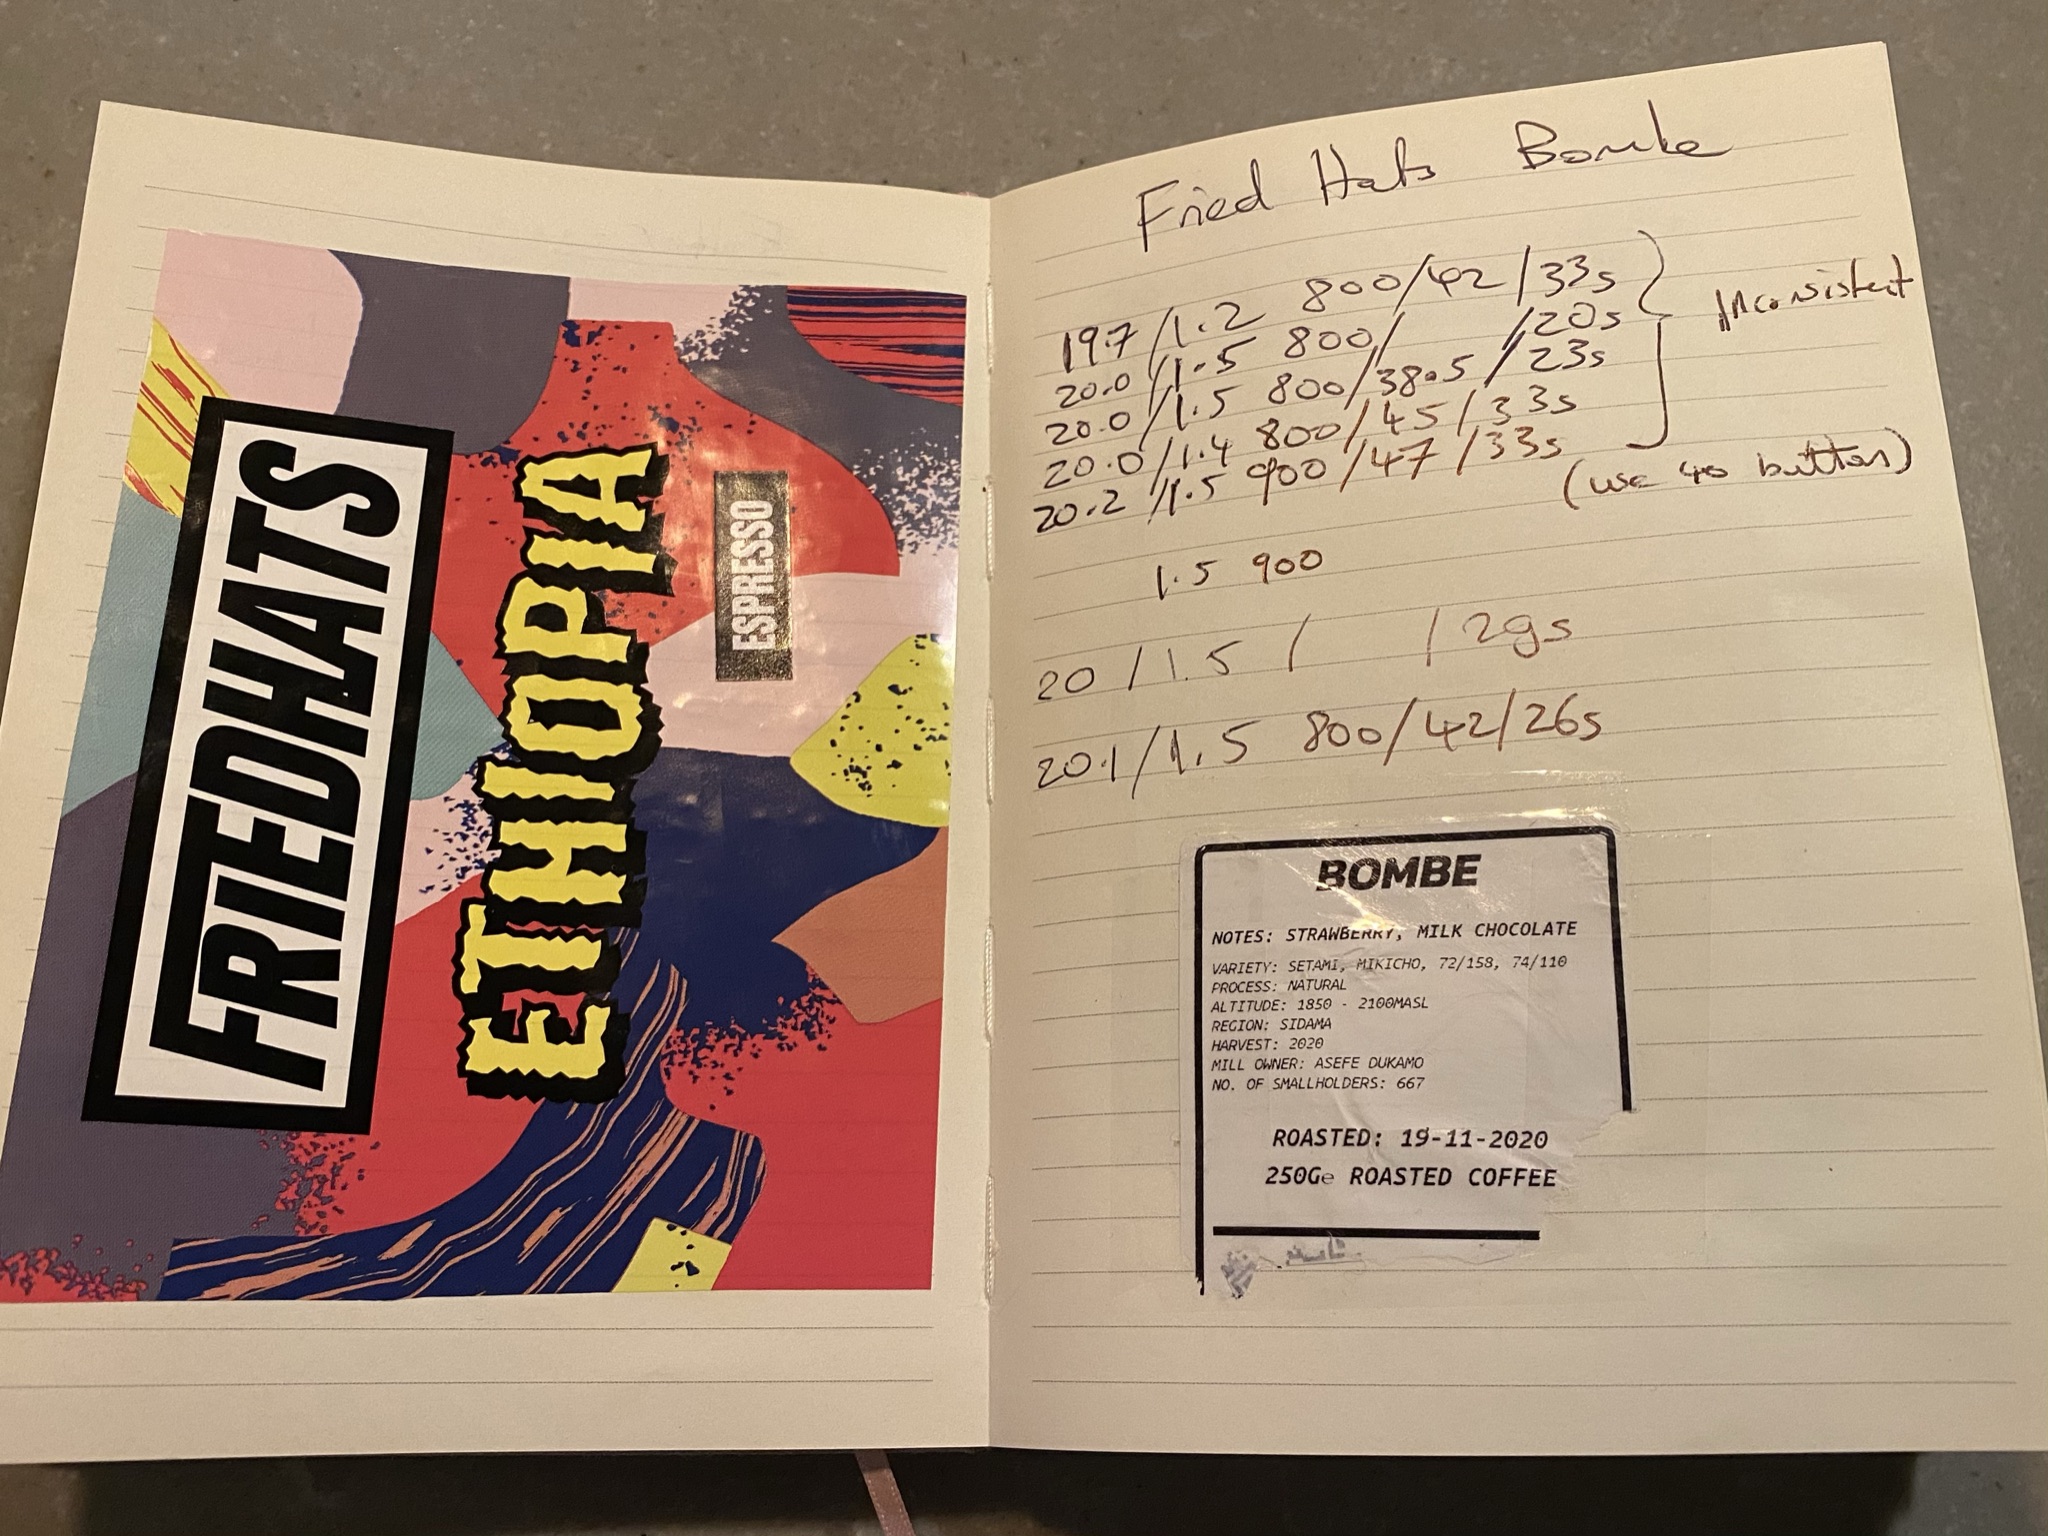 FRIEDHATS
ETHIOPIA
ESPRESSO
Fried Hats Bombe
19.7 / 1.2 800/42/33s
20.0 / 1.5 800/ /20s
20.0 / 1.5 800/38.5/23s
20.0 / 1.4 800/45/33s
20.2 / 1.5 900/47/33s
Inconsistent
(use 40 button)
1.5 900
20 / 1.5 / / 29s
20.1 / 1.5 800/42/26s
BOMBE
NOTES: STRAWBERRY, MILK CHOCOLATE
VARIETY: SETAMI, MIKICHO, 72/158, 74/110
PROCESS: NATURAL
ALTITUDE: 1850 - 2100MASL
REGION: SIDAMA
HARVEST: 2020
MILL OWNER: ASEFE DUKAMO
NO. OF SMALLHOLDERS: 667
ROASTED: 19-11-2020
250G℮ ROASTED COFFEE